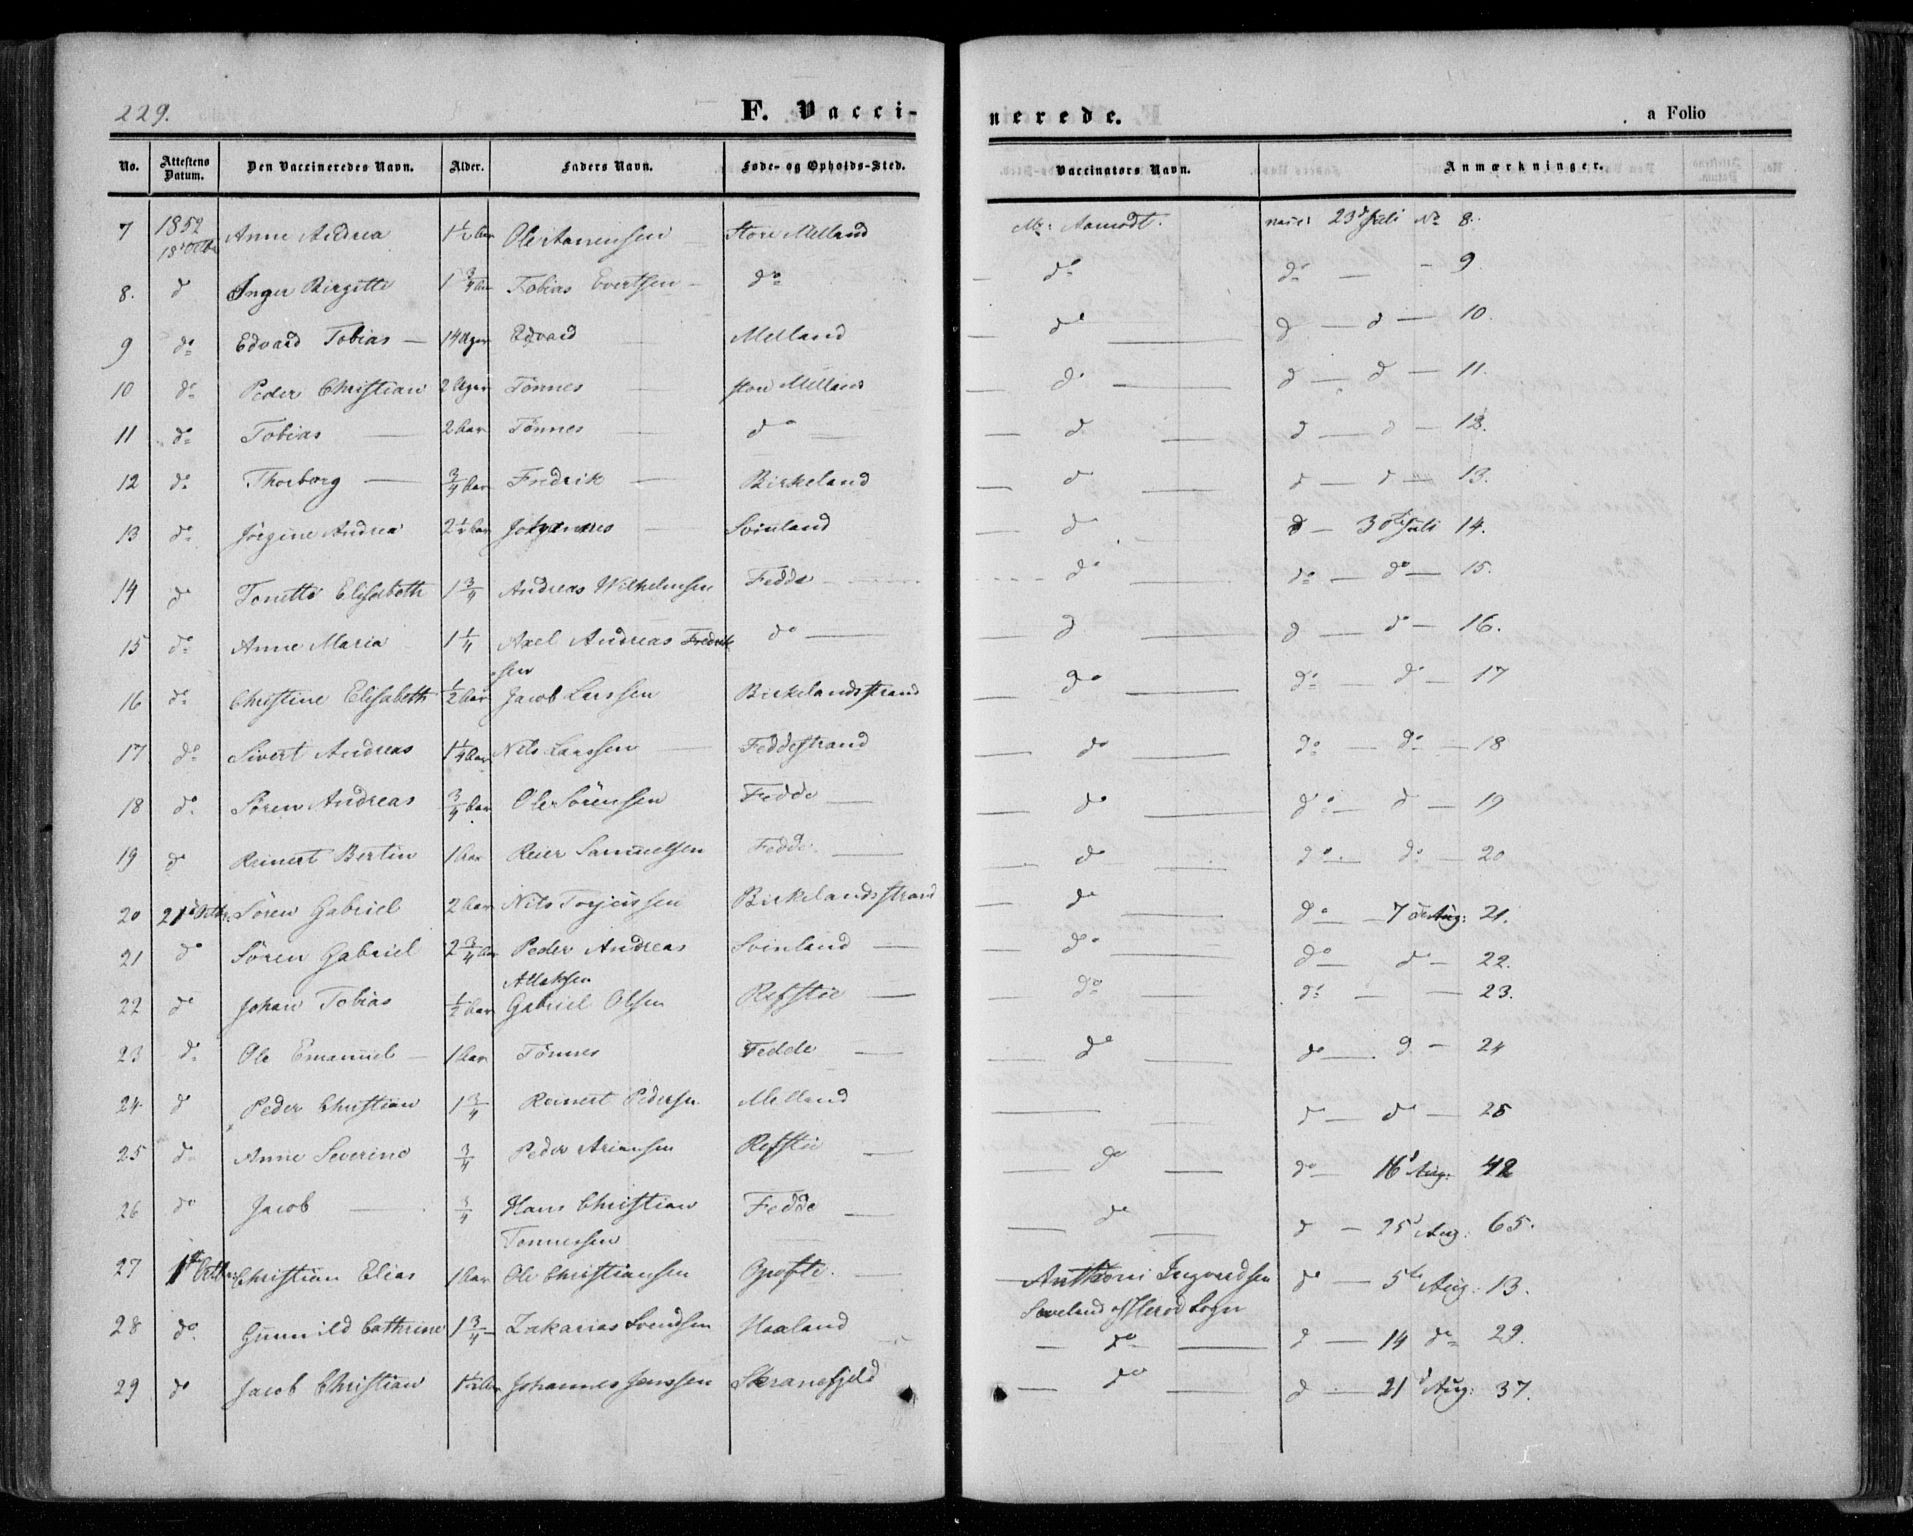 229. F. Vacci- nerede. a Folio
No. Attestens Datum. Den Vaccineredes Navn. Alder. Faders Navn. Føde- og Opholds-Sted. Vaccinators Navn. Anmærkninger.
7 1852 18d Octbr Anne Andrea 1½ aar Ole Store Melland Mr: Aamodt. 23d Juli No 8.
8. do Inger Birgitte 1¾ aar Tobias Evertsen do do do 9
9 do Edvard Tobias 14 Uger Edvard Melland do d d 10.
10 do Peder Christian 2 Uger Tönnes Store Melland do d d 11.
11 do Tobias 2 aar Tönnes do d d d 12.
12 do Thorborg ¾ aar Fredrik Birkeland d d d 13.
13 do Jörgine Andrea 2½ aar Johannes Svinland d d 30te Juli 14.
14 do Tonette Elisabeth 1¾ Andreas Wilhelmsen Fedde do do do 15.
15 do Anne Maria 1¼ Axel Andreas Fredrik
sen do d d do 16.
16 do Christine Elisabeth ½ aar Jacob Larssen Birkelandsstrand do do d 17
17 do Sivert Andreas 1¼ aar Nils Larssen Feddestrand do do do 18
18 do Sören Andreas ¾ aar Ole Sörensen Fedde do do d 19
19 do Reinert Bertin 1 aar Reier Samuelsen Fedde do do do 20
20 21d Octbr: Sören Gabriel 2 aar Nils Torjussen Birkelandsstrand do do 7de Aug: 21.
21 do Sören Gabriel 2¾ aar Peder Andreas
Atlaksen Svinland do do d 22.
22 do Johan Tobias ½ aar Gabriel Olsen Refstie do do 23.
23 do Ole Emanuel 1 aar Tönnes Fedde do do d 24
24 d Peder Christian 1¾ Reinert Pedersen Melland d do 25
25 do Anne Severine ¾ Peder Refstie do do 16d Aug: 42
26 do Jacob ¾ Hans Christian
Tonnessen Fedde do d 25d Aug: 65.
27 1d Octbr: Christian Elias 1 aar Ole Christiansen Anthoni Ingvardsen
Sogn do 5te Aug: 13.
28 do Gunnild Cathrine 1¾ Zakarias Svendsen Haaland do d 14 do 29.
29 do Jacob Christian 1½ aar Johannes Jenssen Skranefjeld do d 21d Aug: 37.